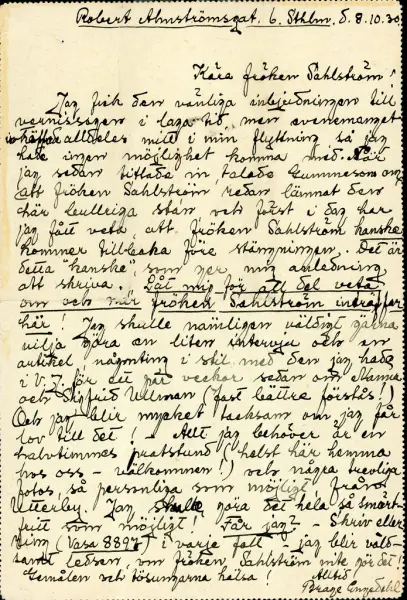 Robert Almströmsgat. 6. Sthlm. d. 8.10.30
Kära fröken Sahlström!
Jag fick den vänliga inbjudningen till
vernissagen i laga tid men evenemanget
inträffade alldeles mitt i min flyttning så jag
hade ingen möjlighet komma med. När
jag sedan tittade in talade Gummeson om
att fröken Sahlström redan lämnat den
här bullriga stan och först i dag har
jag fått veta, att fröken Sahlström kanske
kommer tillbaka före stängningen. Det är
detta "kanske" som ger mig anledning
att skriva. Låt mig för all del veta
om och när fröken Sahlström inträffar
här! Jag skulle nämligen väldigt gärna
vilja göra en liten intervju och en
artikel, någonting i stil med den jag hade
i Vi för ett par veckor sedan om Manna
och Sigfrid Ullman (fast bättre förstås!)
Och jag blir mycket tacksam om jag får
lov till det! - Allt jag behöver är en
halvtimmes pratstund (helst här hemma
hos oss - välkommen!) och några trevliga
foton, så personliga som möjligt, från
Utterby. Jag skall göra det hela så smärt-
fritt som möjligt! Får jag? - Skriv eller
ring (Vasa 8897) i varje fall - jag blir väld-
samt ledsen om fröken Sahlström inte gör det!
Gemålen och tösungarna hälsa!
Alltid
Brage